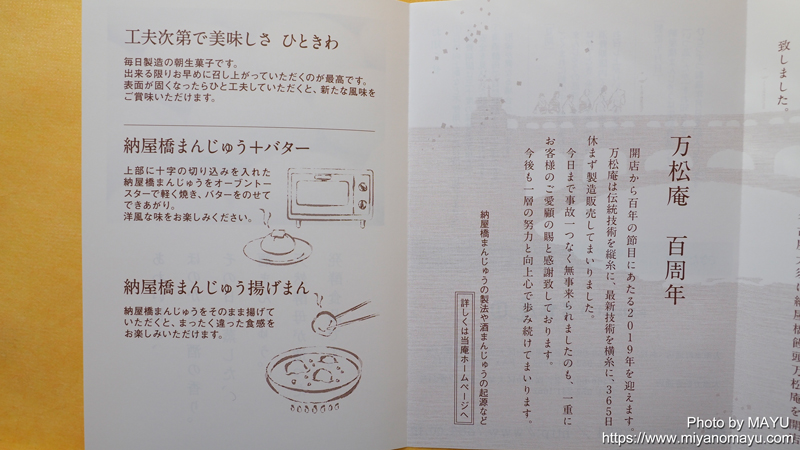 工夫次第で美味しさ ひときわ
毎日製造の朝生菓子です。
出来る限りお早めに召し上がっていただくのが最高です。
表面が固くなったらひと工夫していただくと、新たな風味を
ご賞味いただけます。
納屋橋まんじゅう＋バター
上部に十字の切り込みを入れた
納屋橋まんじゅうをオーブントー
スターで軽く焼き、バターをのせて
できあがり。
洋風な味をお楽しみください。
納屋橋まんじゅう揚げまん
納屋橋まんじゅうをそのまま揚げて
いただくと、まったく違った食感を
お楽しみいただけます。
致しました。
万松庵 百周年
開店から百年の節目にあたる2019年を迎えます。
万松庵は伝統技術を縦糸に、最新技術を横糸に、365日
休まず製造販売してまいりました。
今日まで事故一つなく無事来られましたのも、一重に
お客様のご愛顧の賜と感謝致しております。
今後も一層の努力と向上心で歩み続けてまいります。
納屋橋まんじゅうの製法や酒まんじゅうの起源など
詳しくは当庵ホームページへ
Photo by MAYU
https://www.miyanomayu.com/